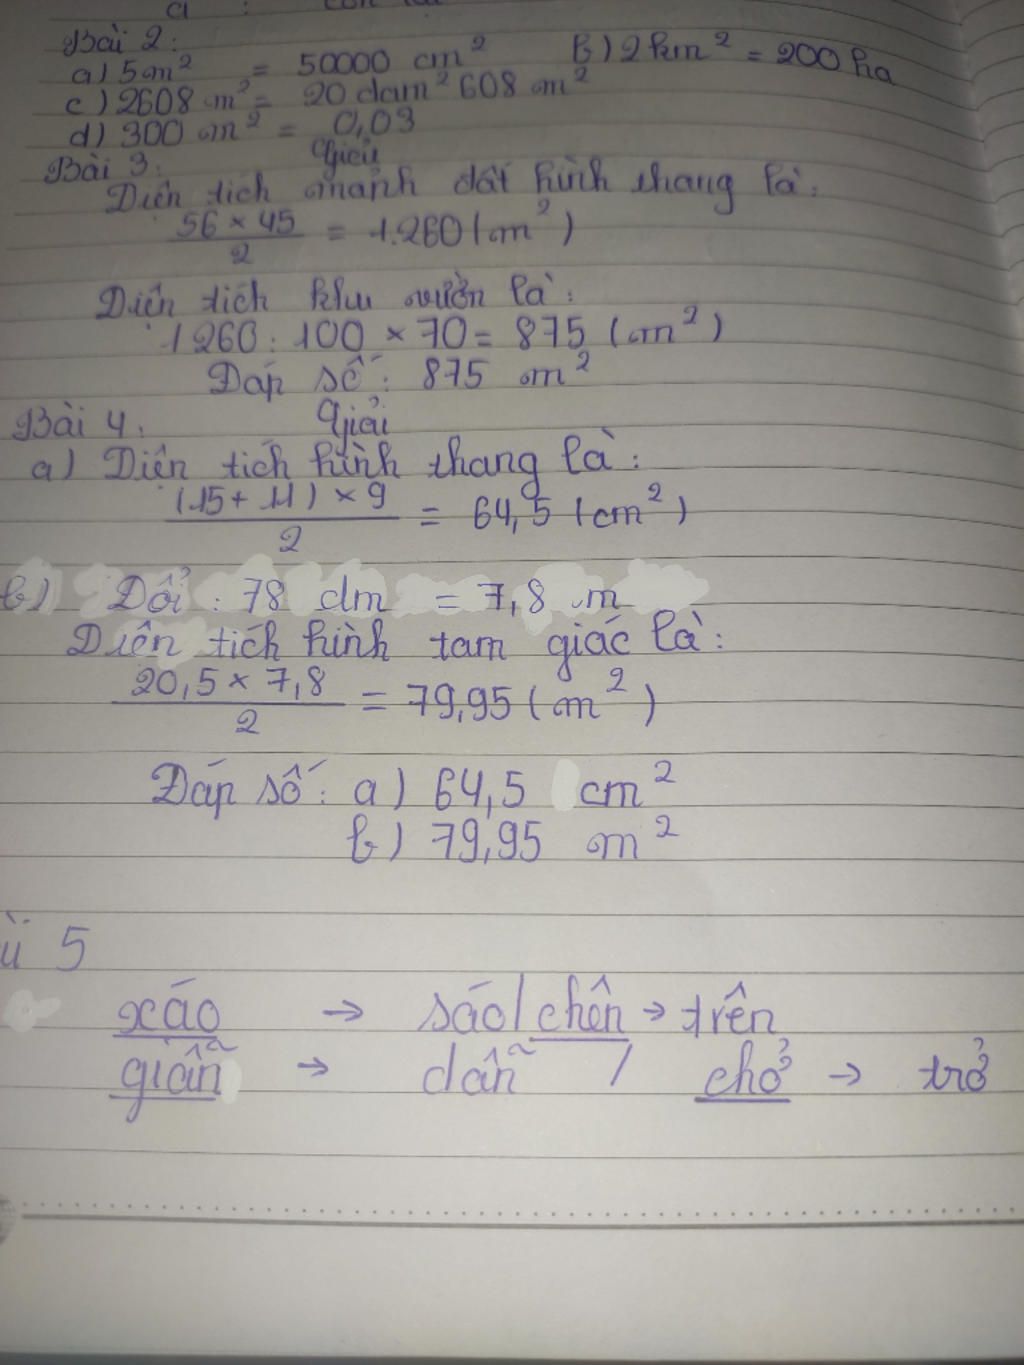 Bài 2:
a) 5m² = 50000 cm² b) 2km² = 200 ha
c) 2608 m² = 20 dam² 608 m²
d) 300 m² = 0,03
Bài 3: Giải
Diện tích mảnh đất hình thang là:
56 × 45 / 2 = 1.260 (m²)
Diện tích khu vườn là:
1260 : 100 × 70 = 875 (m²)
Đáp số: 875 m²
Bài 4: Giải
a) Diện tích hình thang là:
(15 + 11) × 9 / 2 = 64,5 (cm²)
b) Đổi : 78 dm = 7,8 m
Diện tích hình tam giác là:
20,5 × 7,8 / 2 = 79,95 (m²)
Đáp số: a) 64,5 cm²
b) 79,95 m²
5
xáo → sáo / chên → trên
giẫn → dẫn / chở → trở